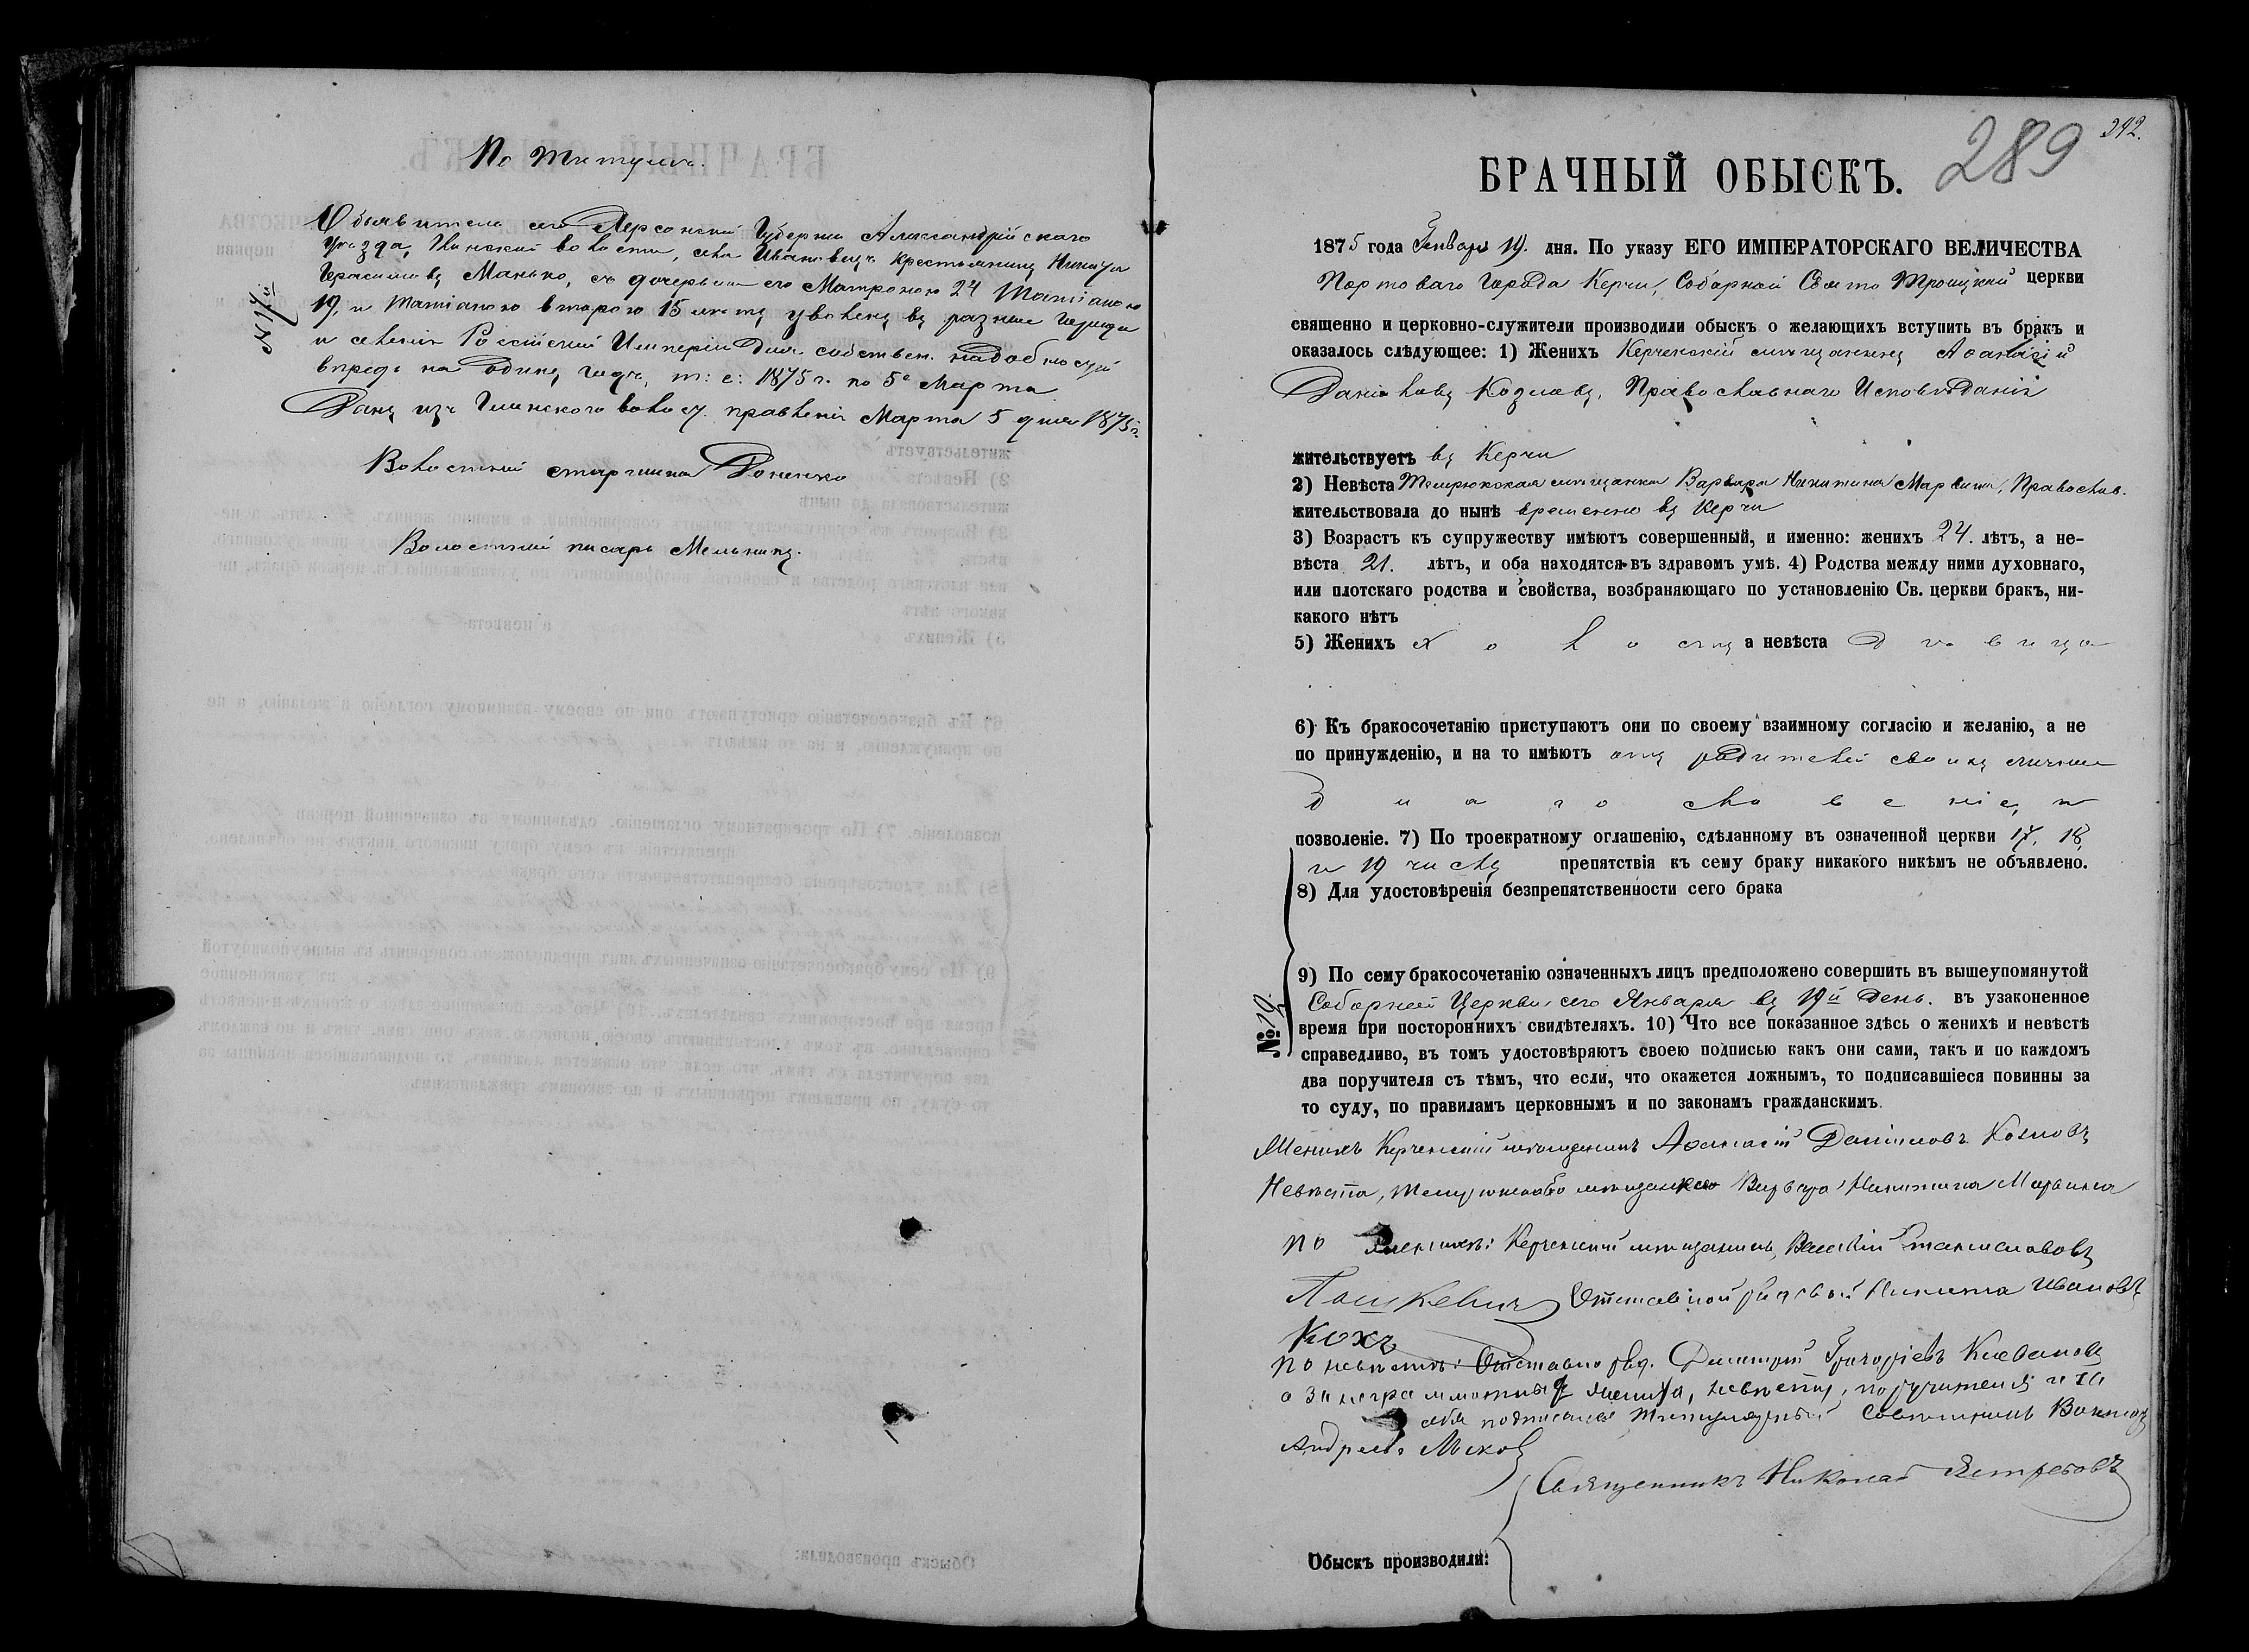 По титулѣ.
Объявитель сего Херсонской Губерніи Александрійскаго
уѣзда, волости, села крестьянинъ
Герасимовъ Манько, съ дочерьми его Матроною 24 Татіаною
19, и Татіаною второю 15 лѣтъ уволенъ въ разные города
и селенія Россійской Имперіи для собствен. надобностей
впредь на одинъ годъ, т: е: 1875 г. по 5е Марта
Данъ изъ Глинского волост. правленія Марта 5 дня 187
Волостной старшина
Волостной писарь Мельникъ.
289
292.
БРАЧНЫЙ ОБЫСКЪ.
1875 года Генваря 19. дня. По указу ЕГО ИМПЕРАТОРСКАГО ВЕЛИЧЕСТВА
Портоваго Города Керчи, Соборной Свято Троицкой церкви
священно и церковно-служители производили обыскъ о желающихъ вступить въ бракъ и
оказалось слѣдующее: 1) Женихъ Керченскій мѣщанинъ Аѳанасій
Даніиловъ Козловъ, Православнаго Исповѣданія
жительствуетъ въ Керчи
2) Невѣста Темрюкская мѣщанка Варвара Никитина Марвина, Православ.
жительствовала до нынѣ временно въ Керчи
3) Возрастъ къ супружеству имѣютъ совершенный, и именно: женихъ 24. лѣтъ, а не-
вѣста 21. лѣтъ, и оба находятся въ здравомъ умѣ. 4) Родства между ними духовнаго,
или плотскаго родства и свойства, возбраняющаго по установленію Св. церкви бракъ, ни-
какого нѣтъ
5) Женихъ холостъ а невѣста дѣвица
6) Къ бракосочетанію приступаютъ они по своему взаимному согласію и желанію, а не
по принужденію, и на то имѣютъ отъ родителей своихъ личное
благословеніе, и
позволеніе. 7) По троекратному оглашенію, сдѣланному въ означенной церкви 17, 18,
и 19 числъ препятствія къ сему браку никакого никѣмъ не объявлено.
8) Для удостовѣренія безпрепятственности сего брака
9) По сему бракосочетанію означенныхъ лицъ предположено совершить въ вышеупомянутой
Соборной Церкви, сего Января въ 19й день. въ узаконенное
время при постороннихъ свидѣтеляхъ. 10) Что все показанное здѣсь о женихѣ и невѣстѣ
справедливо, въ томъ удостовѣряютъ своею подписью какъ они сами, такъ и по каждомъ
два поручителя съ тѣмъ, что если, что окажется ложнымъ, то подписавшіеся повинны за
то суду, по правиламъ церковнымъ и по законамъ гражданскимъ.
№ 19.
Женихъ Керченскій мѣщанинъ Аѳанасій Даніиловъ Козловъ
Невѣста, мѣщанка Варвара Никитина Марвина
по женихѣ: Керченскій мѣщанинъ, Василій Станиславовъ
Пашкевичъ Отставной рядовой Никита Ивановъ
Кохъ
по невѣстѣ: Отставно ряд. Дмитрій Григорієвъ
а за неграмотныхъ жениха, невѣсту, поручителей и за
себя подписался Титулярный Совѣтникъ
Андреевъ
Священникъ Николай Ястребовъ
Обыскъ производили: